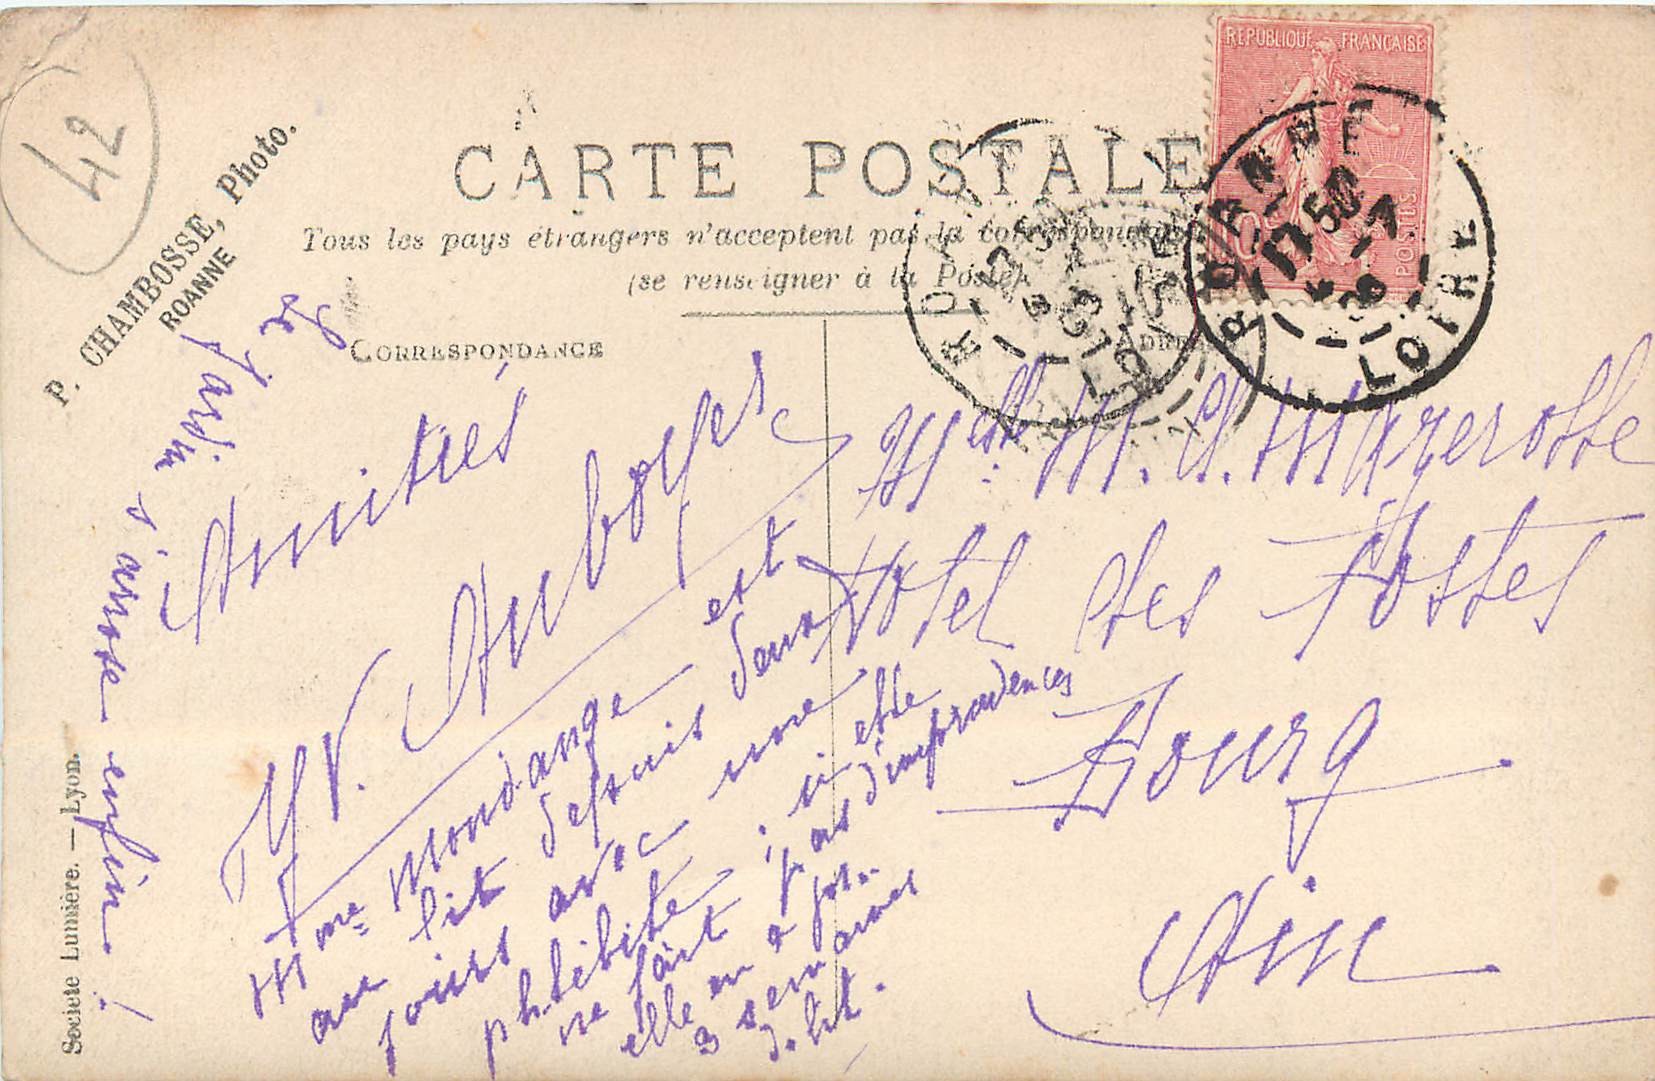 42
P. CHAMBOSSE, Photo.
ROANNE
CARTE POSTALE
Tous les pays étrangers n'acceptent pas la correspondance
(se renseigner à la Poste).
CORRESPONDANCE
REPUBLIQUE FRANÇAISE
POSTES
ROANNE
17 50
LOIRE
ROANNE
LOIRE
Le jardin s'arrose enfin !
Amitiés
Mme Mondange est
au lit depuis deux
jours avec une
phlébite ; si elle
ne fait pas d'imprudences
elle en a pr.
3 semaines
d. lit.
M. Mazerolle
Hotel des Postes
Bourg
Ain
Societe Lumière. — Lyon.